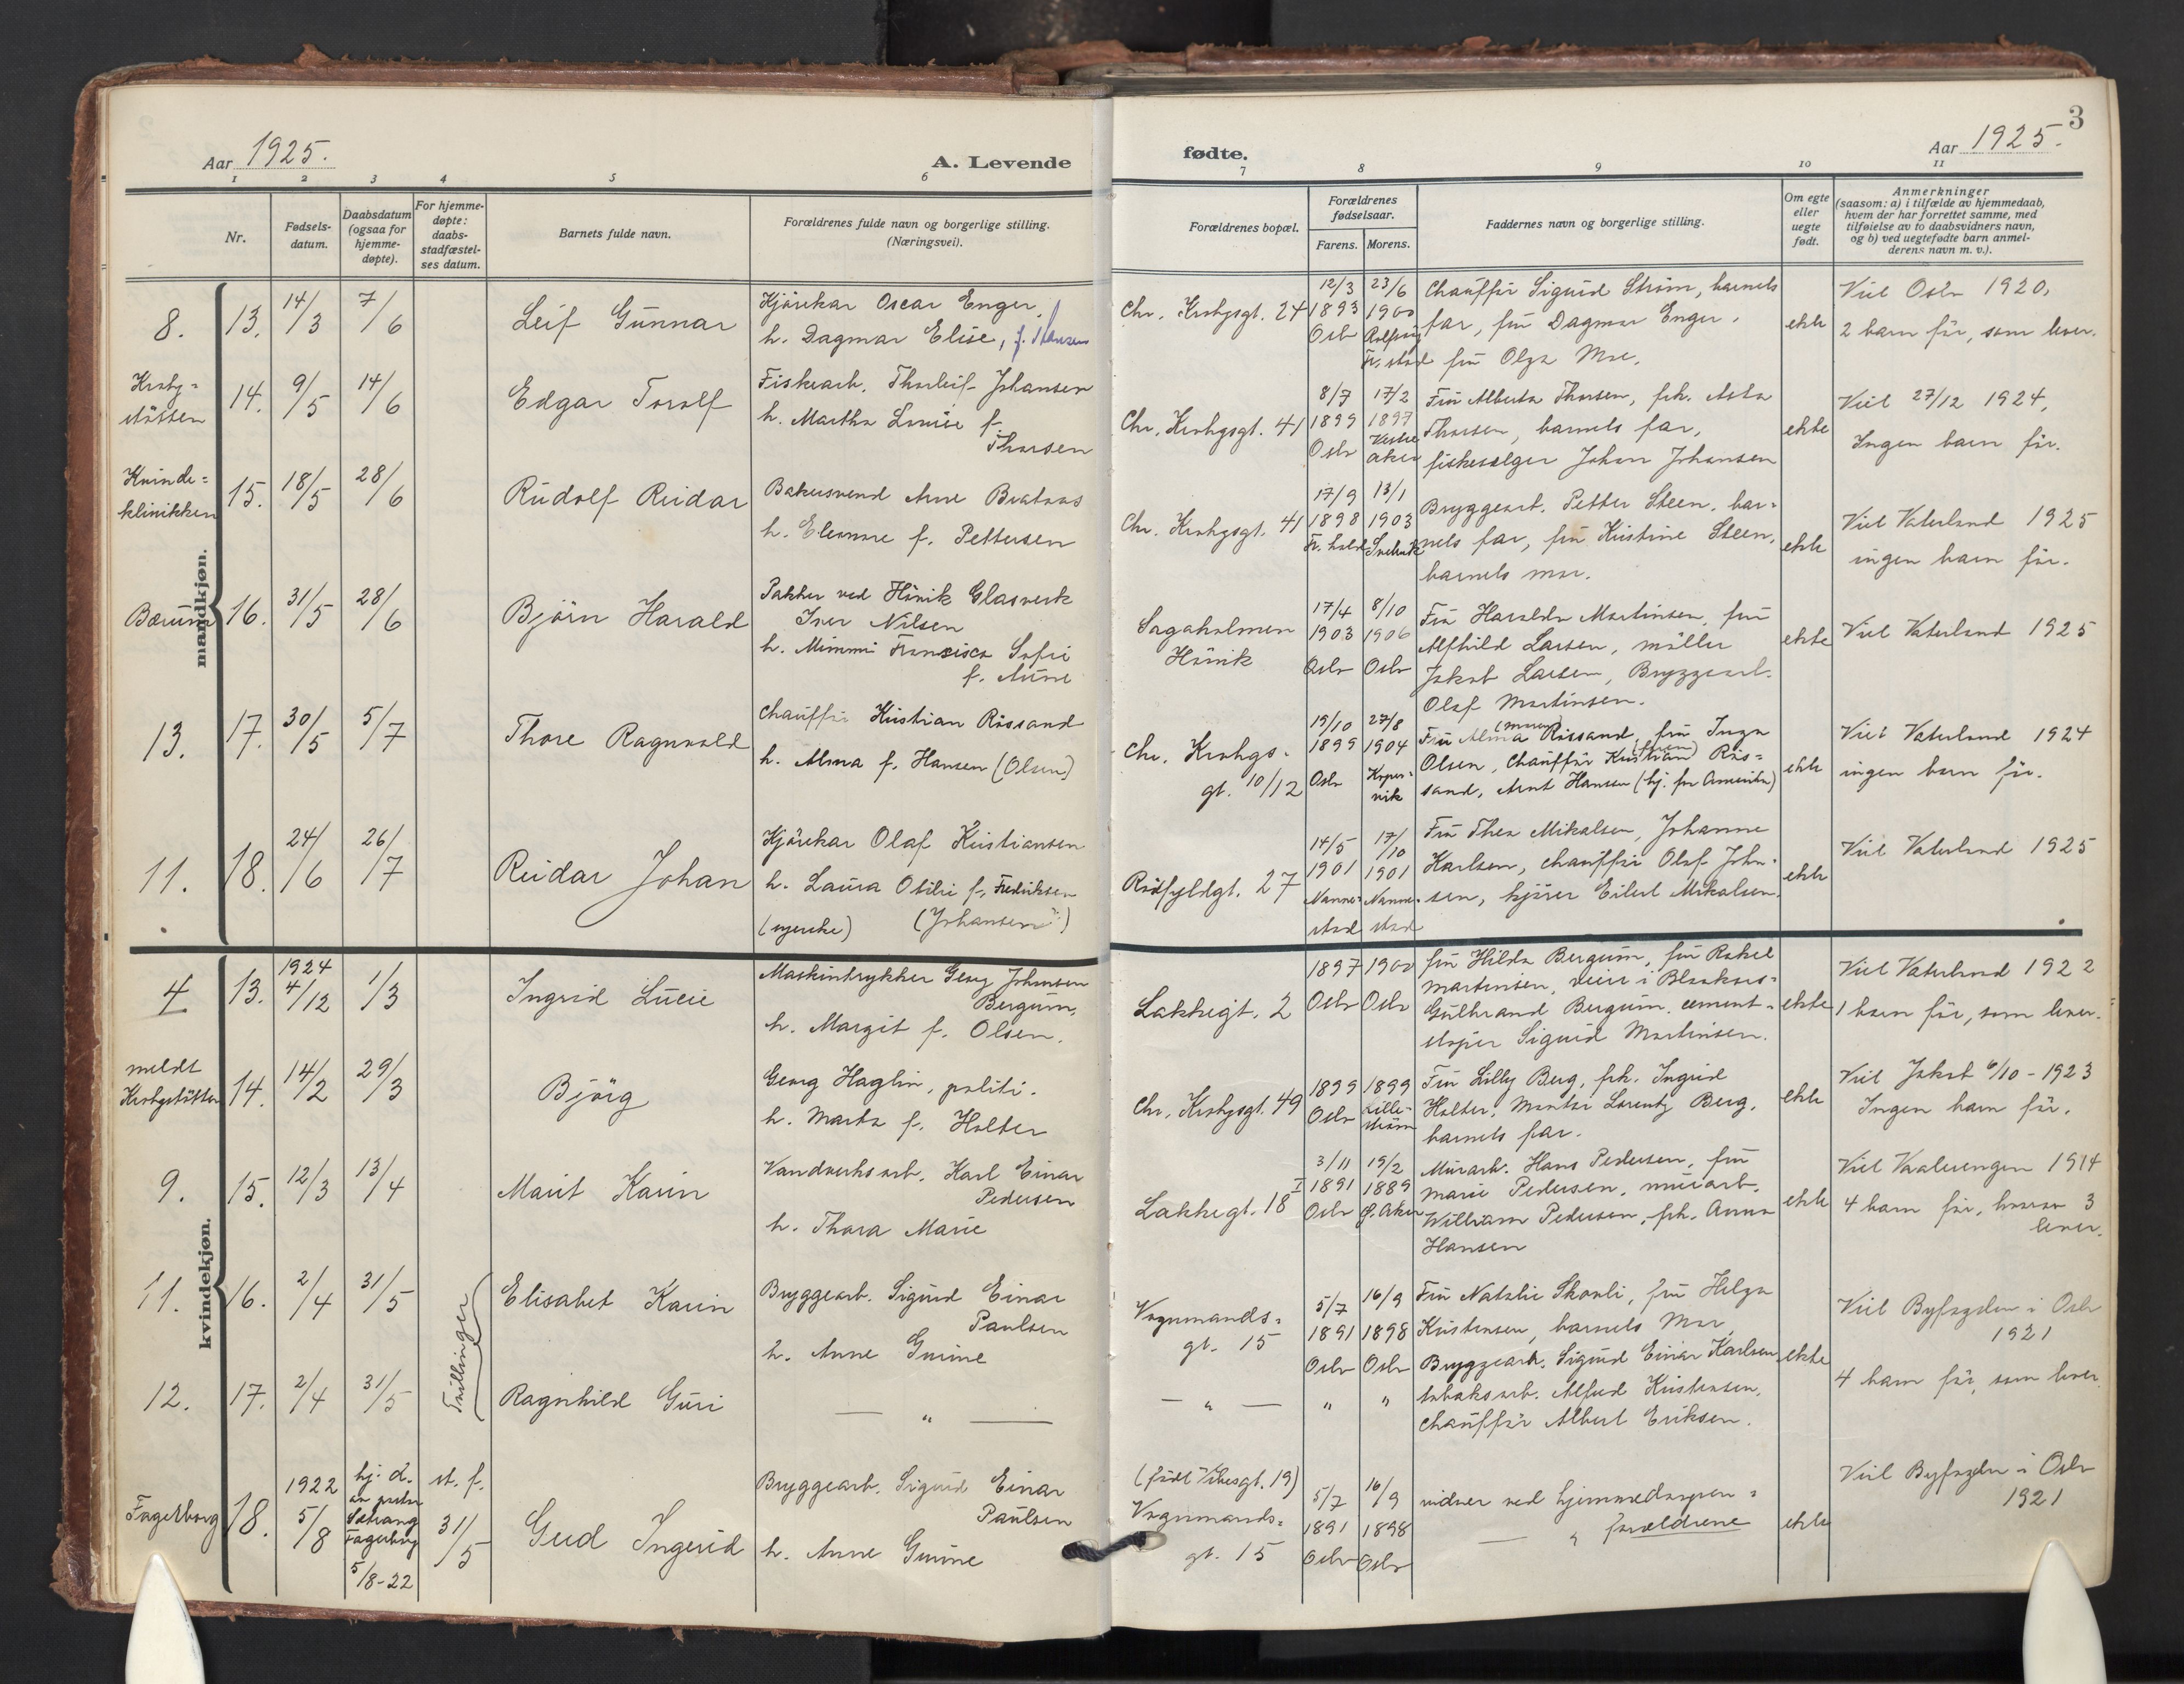 3
Aar 1925.
A. Levende
fødte.
Aar 1925.
1 2 3 4 5 6 7 8 9 10 11
Nr.
Fødsels-
datum.
Daabsdatum
(ogsaa for
hjemme-
døpte).
For hjemme-
døpte:
daabs-
stadfæstel-
ses datum.
Barnets fulde navn.
Forældrenes fulde navn og borgerlige stilling.
(Næringsvei).
Forældrenes bopæl.
Forældrenes
fødselsaar.
Farens. Morens.
Faddernes navn og borgerlige stilling.
Om egte
eller
uegte
født.
Anmerkninger
(saasom: a) i tilfælde av hjemmedaab,
hvem der har forrettet samme, med
tilføielse av to daabsvidners navn,
og b) ved uegtefødte barn anmel-
derens navn m. v.).
mandkjøn.
8. 13. 14/3 7/6
Leif Gunnar
Kjørekar Oscar Enger,
h. Dagmar Elise, f. Hansen
Chr. Krohgsgt. 24
12/3 1893 Oslo
23/6 1900 Fr. stad
Chauffør Sigurd Strøm, barnets
far, fru Dagmar Enger,
fru Olga Moe.
ekte
Viet Oslo 1920,
2 barn før, som lever.
Krohg=
støtten
14. 9/5 14/6
Edgar Torolf
Fiskearb. Thorleif Johansen
h. Martha Louise f.
Thorsen
Chr. Krohgsgt. 41
8/7 1899 Oslo
17/2 1897 Vestre Aker
Fru Alberta Thorsen, frk. Asta
Thorsen, barnets far,
fiskesælger Johan Johansen
ekte
Viet 27/12 1924,
Ingen barn før.
Kvinde=
klinikken
15. 18/5 28/6
Rudolf Reidar
Bakersvend Arne Brataas
h. Eleonore f. Pettersen
Chr. Krohgsgt. 41
17/9 1898 Fr. hald
13/1 1903
Bryggearb. Petter Steen, bar=
nets far, fru Kristine Steen,
barnets mor.
ekte
Viet Vaterland 1925
ingen barn før.
Bærum
16. 31/5 28/6
Bjørn Harald
Pakker ved Høvik Glasverk
Iver Nilsen
h. Mimmi Fransisca Sofie
f. Aune
Sagaholmen
Høvik
17/4 1903 Oslo
8/10 1906 Oslo
Fru Haralda Martinsen, fru
Alfhild Larsen, møller
Jakob Larsen, Bryggearb.
Olaf Martinsen.
ekte
Viet Vaterland 1925
13. 17. 30/5 5/7
Thore Ragnvald
Chauffør Kristian Røssand
h. Alma f. Hansen (Olsen)
Chr. Krohgs-
gt. 10/12
19/10 1899 Oslo
27/8 1904 Koper-
vik
Fru Alma (moren) Røssand, fru Inga
Olsen, Chauffør Kristian (faren) Røs=
sand, Arnt Hansen (hj. fra Amerika)
ekte
Viet Vaterland 1924
ingen barn før.
11. 18. 24/6 26/7
Reidar Johan
Kjørekar Olaf Kristiansen
h. Laura Otilie f. Fredriksen
(Johansen)
Rødfyldgt. 27
14/5 1901 Nanne-
stad
17/10 1901 Nanne-
stad
Fru Thea Mikalsen, Johanne
Karlsen, chauffør Olaf Joha-
sen, kjører Eilert Mikalsen.
ekte
Viet Vaterland 1925
kvindekjøn.
4 13. 1924 4/12 1/3
Ingrid Lucie
Maskintrykker Georg Johansen
Bergum,
h. Margit f. Olsen.
Lakkegt. 2
1897 Oslo
1900 Oslo
fru Hilda Bergum, fru Rakel
Martinsen,
Gulbrand Bergum, cement-
støper Sigurd Martinsen.
ekte
Viet Vaterland 1922
1 barn før, som lever.
meldt
Krohgstøtten
14. 14/2 29/3
Bjørg
Georg Haglin, politi.
h. Marta f. Holter
Chr. Krohgsgt. 49
1899 Oslo
1899 Lille-
strøm
Fru Lilly Berg, frk. Ingrid
Holter, Montør Lorentz Berg,
barnets far.
ekte
Viet Jakob 6/10 - 1923
Ingen barn før.
9. 15. 12/3 13/4
Marit Karin
Vandverksarb. Karl Einar
Pedersen
h. Thora Marie
Lakkegt. 18 I
3/11 1891 Oslo
19/2 1889 Ø. Aker
Murarb. Hans Pedersen, fru
Marie Pedersen, murarb.
William Pedersen, frk. Anna
Hansen
ekte
Viet Vaalerengen 1914
4 barn før, hvorav 3
lever.
11. 16. 2/4 31/5
Tvillinger
Elisabet Karin
Bryggearb. Sigurd Einar
Paulsen
h. Anne Gurine
Vognmands=
gt. 15
5/7 1891 Oslo
16/9 1898 Oslo
Fru Natalie Skovli, fru Helga
Kristensen, barnets Mor,
Bryggearb. Sigurd Einar Karlsen
tobaksarb. Alfred Kristensen,
Chauffør Albert Eriksen.
ekte
Viet Byfogden i Oslo
1921
4 barn før, som lever.
12. 17. 2/4 31/5
Ragnhild Guri
— " —
— " —
" "
Fagerborg
18. 1922 5/8
hj: d.
av prest
Fagerborg
5/8-22
st. f.
31/5
Gud Ingerid
Bryggearb. Sigurd Einar
Paulsen
h. Anne Gurine
(født Vibesgt. 19)
Vognmands=
gt. 15
5/7 1891 Oslo
16/9 1898 Oslo
vidner ved hjemmedaapen =
— " forældrene
ekte
Viet Byfogden i Oslo
1921